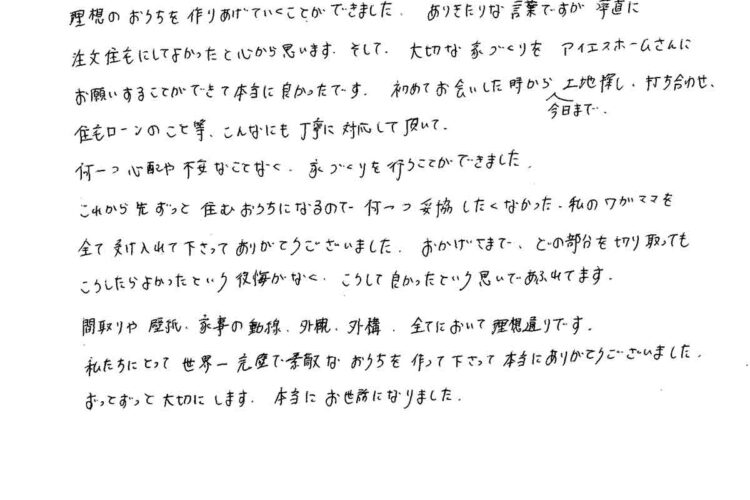 理想のおうちを作りあげていくことができました。ありきたりな言葉ですが率直に
注文住宅にしてよかったと心から思います。そして、大切な家づくりをアイエスホームさんに
お願いすることができて本当に良かったです。初めてお会いした時から土地探し、打ち合わせ、
今日まで、
住宅ローンのこと等、こんなにも丁寧に対応して頂いて、
何一つ心配や不安なことなく、家づくりを行うことができました。
これから先ずっと住むおうちになるので何一つ妥協したくなかった、私のワガママを
全て受け入れて下さってありがとうございました。おかげさまで、どの部分を切り取っても
こうしたらよかったという後悔がなく、こうして良かったという思いであふれてます。
間取りや壁紙、家事の動線、外観、外構、全てにおいて理想通りです。
私たちにとって世界一完璧で素敵なおうちを作って下さって本当にありがとうございました。
ずっとずっと大切にします。本当にお世話になりました。